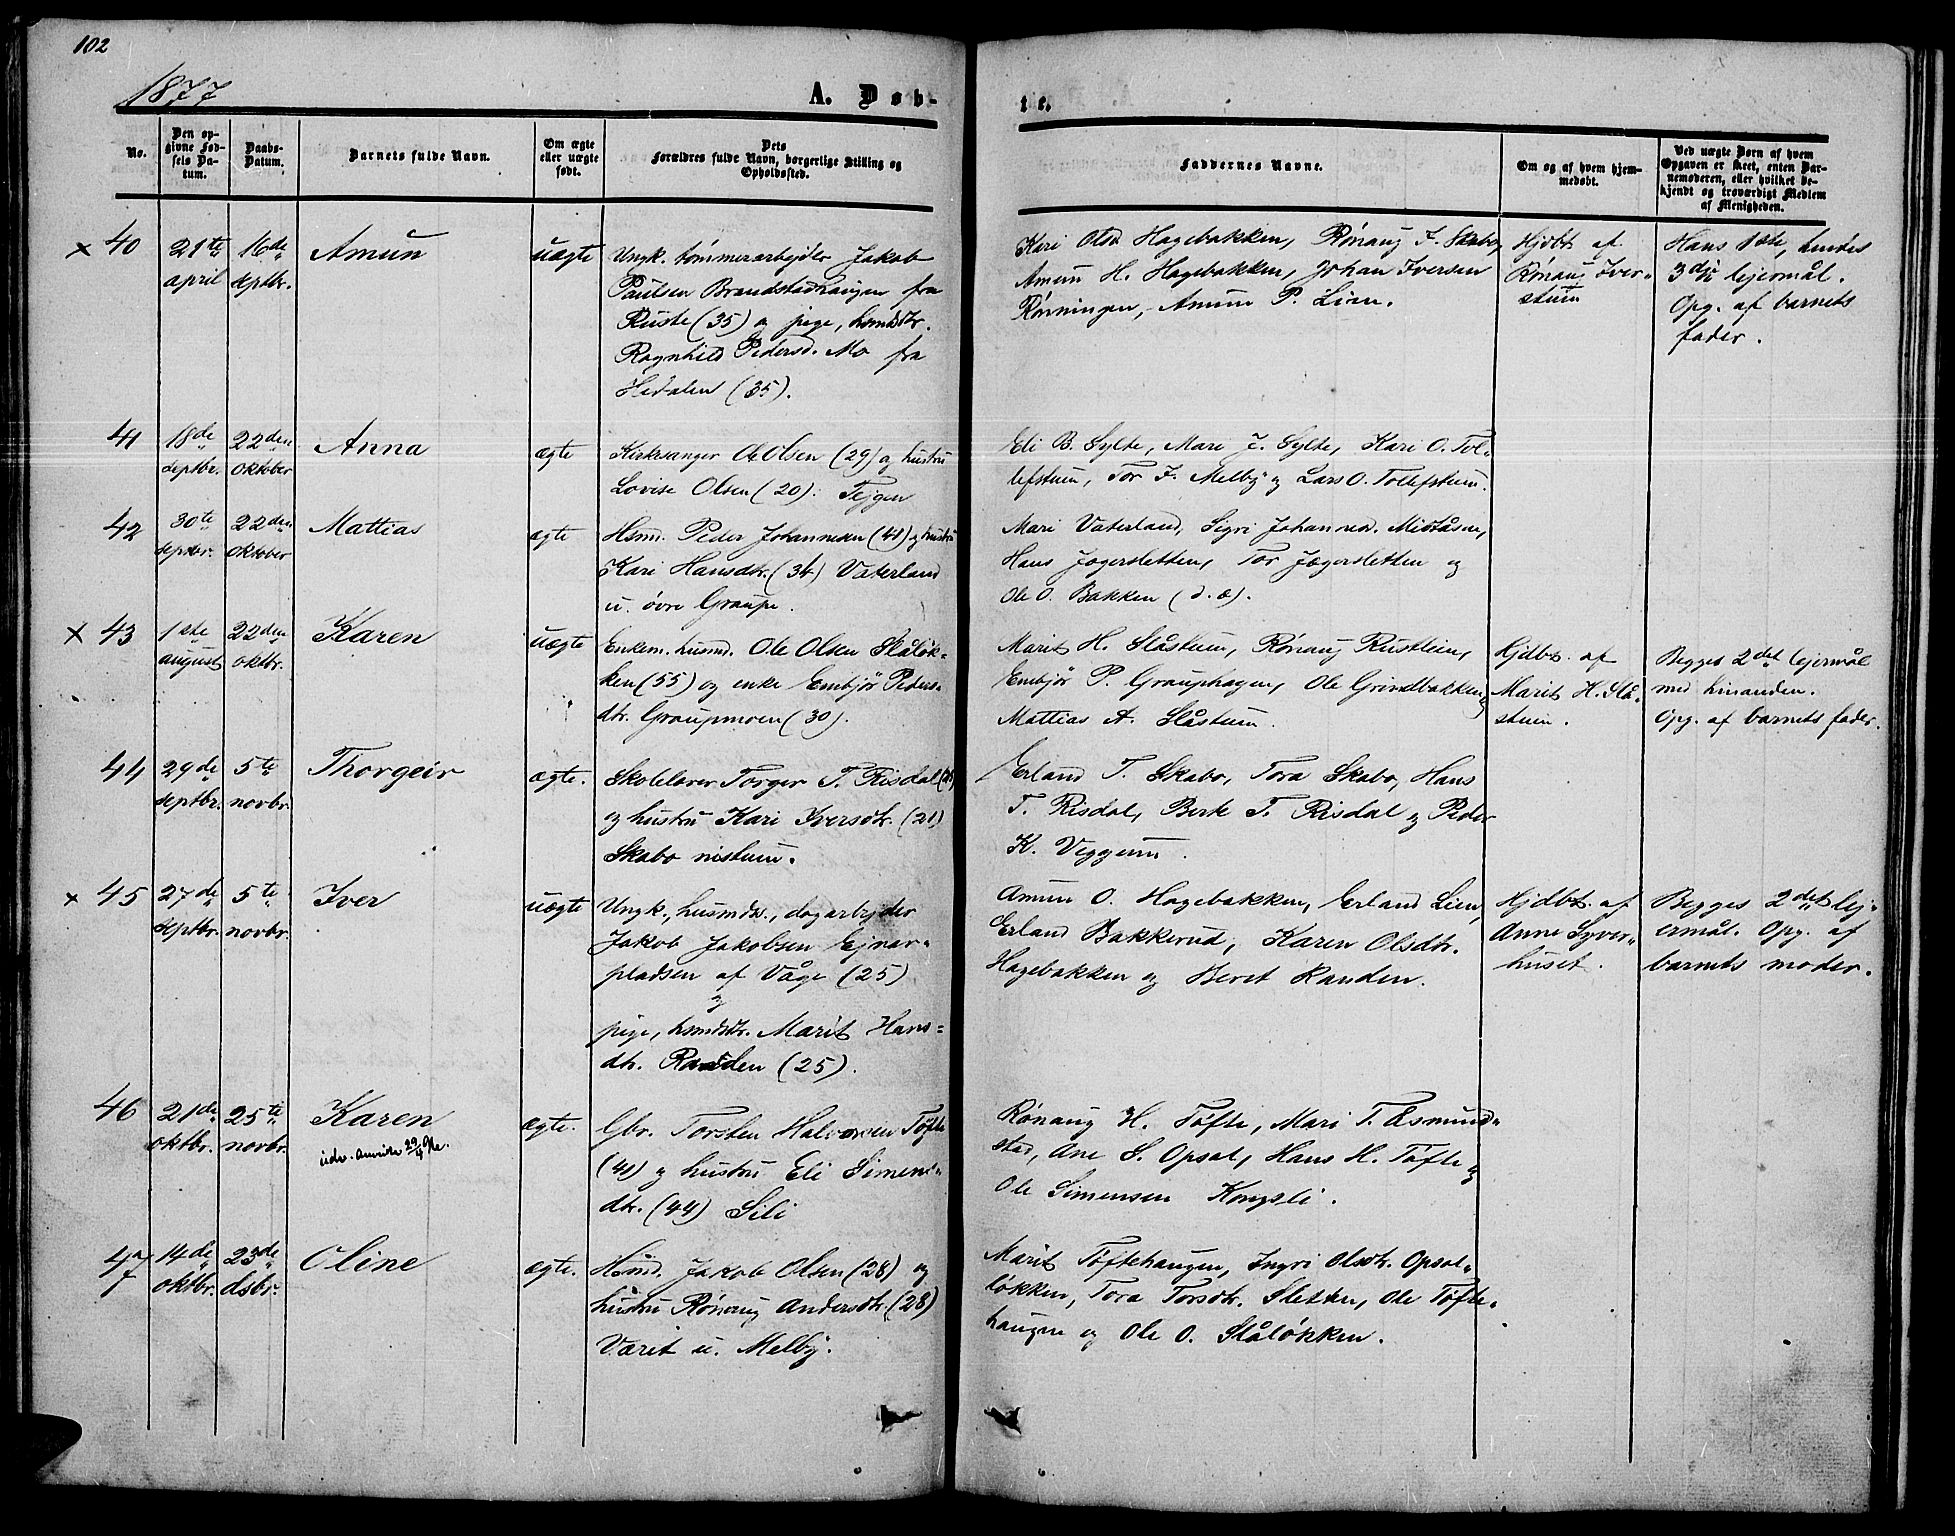 102
1877
A. Døb-
te.
No.
Den op-
givne Fød-
sels Da-
tum.
Daabs-
Datum.
Barnets fulde Navn.
Om ægte
eller uægte
født.
Dets
Forældres fulde Navn, borgerlige Stilling og
Opholdssted.
Faddernes Navne.
Om og af hvem hjem-
medøbt.
Ved uægte Børn af hvem
Opgaven er skeet, enten Bar-
nemoderen, eller hvilket be-
kjendt og troværdigt Medlem
af Menigheden.
x 40
21te
april
16de
septbr.
Amun
uægte
Ungk. tømmerarbejder Jakob
Paulsen Brandstadhaugen fra
Ruste (35) og pige, hsmdsdtr.
Ragnhild Pedersd. Mo fra
Hedalen (35).
Kari Olsd. Hagebakken, Rønaug I. Skabo,
Amun H. Hagebakken, Johan Iversen
Rønningen, Amun P. Lien.
Hjdbt. af
Rønaug Iver-
stuen
Hans 1ste, hendes
3die lejermål.
Opg. af barnets
fader.
41
18de
septbr.
22den
oktober
Anna
ægte
Kirkesanger O. Olsen (29) og hustru
Lovise Olsen (20): Tejgen
Eli B. Sylte, Mari J. Sylte, Kari O. Tol-
lefstuen, Tor I. Melby og Lars O. Tollefstuen.
42
30te
septbr.
22den
oktober
Mattias
ægte
Hsmd. Peder Johannesen (41) og hustru
Kari Hansdtr. (34) Vaterland
u. øvre Graupe.
Mari Vaterland, Sigri Johannesd. Midtåsen,
Hans Jægersletten, Tor Jægersletten og
Ole O. Bakken (d. æ).
x 43
1ste
august
22den
oktbr.
Karen
uægte
Enkem. husmd. Ole Olsen Slåløk-
ken (55) og enke Embjør Peders-
dtr. Graupmoen (30).
Marit H. Slåstuen, Rønaug Rustlien,
Embjør P. Grauphagen, Ole Grindbakken og
Mattias A. Slåstuen.
Hjdbt. af
Marit H. Slå-
stuen.
Begges 2det lejermål
med hinanden.
Opg. af barnets fader.
44
29de
septbr.
5te
novbr.
Thorgeir
ægte.
Skolelærer Torger T. Risdal
og hustru Kari Iversdtr. (21)
Skabo nistuen.
Erland T. Skabo, Tora Skabo, Hans
T. Risdal, Berte T. Risdal og Peder
K. Veggum.
x 45
27de
septbr.
5te
novbr.
Iver
uægte
Ungk., husmds., dagarbejder
Jakob Jakobsen Ejnar-
pladsen af Våge (25)
og
pige, hsmdsdtr. Marit Hans-
dtr. Randen (25).
Amun O. Hagebakken, Erland Lien,
Erland Bakkerud, Karen Olsdtr.
Hagebakken og Beret Randen.
Hjdbt. af
Anne Syver-
huset.
Begges 2det lej-
ermål. Opg. af
barnets moder.
46
21de
oktbr.
25te
novbr.
Karen
ægte.
Gbr. Torsten Halvorsen Tøfte
(41) og hustru Eli Simens-
dtr. (44) Sili
Rønaug H. Tøfte, Mari T. Æsmund-
stad, Ane S. Opsal, Hans H. Tøfte og
Ole Simensen Kongsli.
47
14de
oktbr.
23de
dsbr.
Oline
ægte.
Hsmd. Jakob Olsen (28) og
hustru Rønaug Andersdtr. (28)
Været u. Melby.
Marit Tøftehaugen, Ingri Olsdtr. Opsal-
løkken, Tora Torsdtr. Sletten, Ole Tøfte-
haugen og Ole O. Slåløkken.